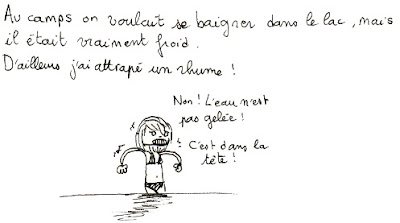 Au camps on voulait se baigner dans le lac, mais
il était vraiment froid.
D'ailleurs j'ai attrapé un rhume !
Non ! L'eau n'est
pas gelée !
C'est dans la
tête !